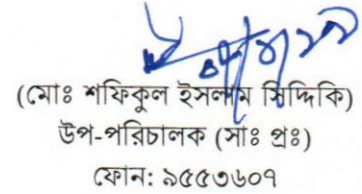 (মোঃ শফিকুল ইসলাম সিদ্দিকি)
উপ-পরিচালক (সাঃ প্রঃ)
ফোন: ৯৫৫৩৬০৭